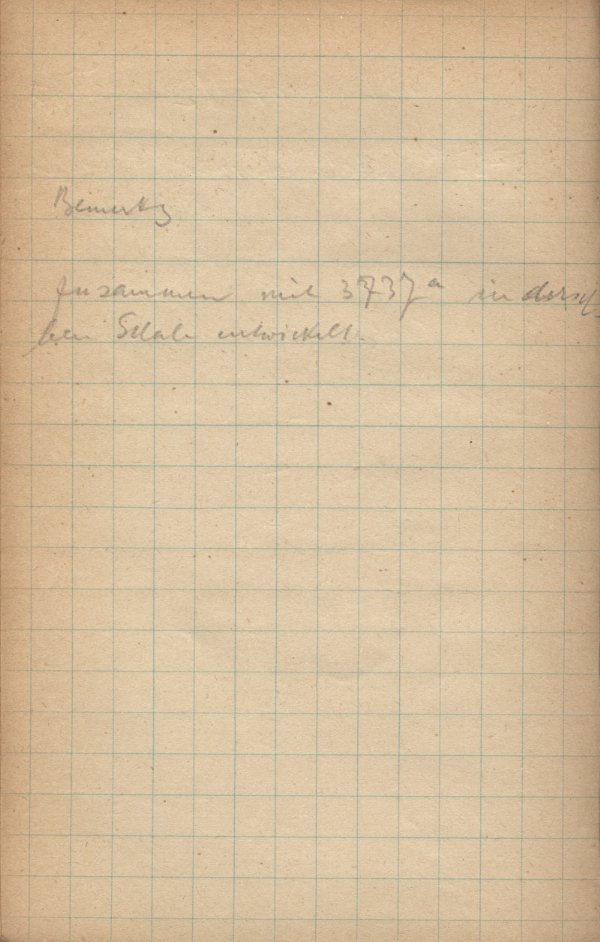 Bemerkg
Zusammen mit 3737a in dersel-
ben Schale entwickelt.